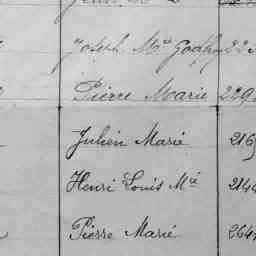 Joseph Mie Godfry 22
Pierre Marie 229
Julien Marie 216
Henri Louis Mie 214
Pierre Marie 264